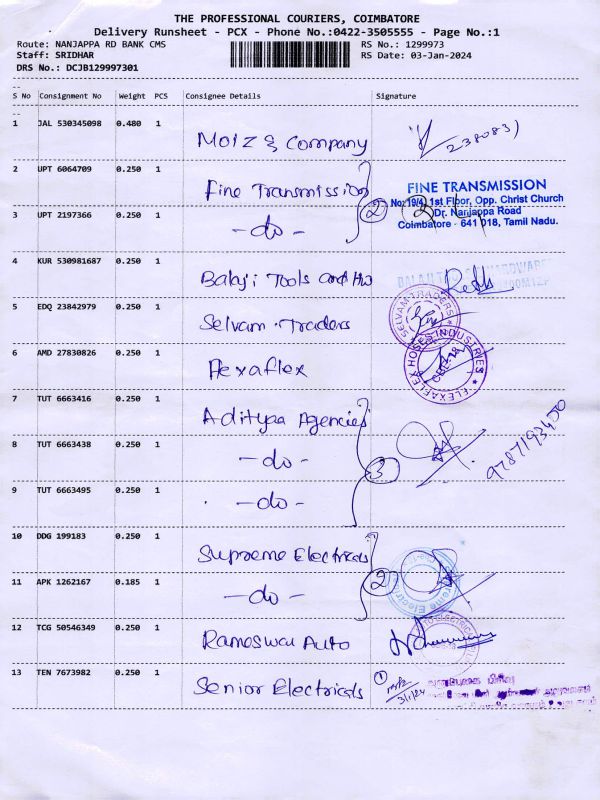 THE PROFESSIONAL COURIERS, COIMBATORE
Delivery Runsheet - PCX - Phone No.:0422-3505555 - Page No.:1
Route: NANJAPPA RD BANK CMS RS No.: 1299973
Staff: SRIDHAR RS Date: 03-Jan-2024
DRS No.: DCJB129997301
S No Consignment No Weight PCS Consignee Details Signature
1 JAL 530345098 0.480 1 Moiz & Company 238083)
2 UPT 6064709 0.250 1 Fine Transmission
FINE TRANSMISSION
No:19/4, 1st Floor, Opp. Christ Church
Dr. Nanjappa Road
Coimbatore - 641 018, Tamil Nadu.
3 UPT 2197366 0.250 1 -do- 2
4 KUR 530981687 0.250 1 Balaji Tools and HW
5 EDQ 23842979 0.250 1 Selvam Traders
SELVAM TRADERS
6 AMD 27830826 0.250 1 Flexaflex
FLEXAFLEX HOSES INDUSTRIES
CBE-28
7 TUT 6663416 0.250 1 Aditya Agencies
8 TUT 6663438 0.250 1 -do- 3 9787193400
9 TUT 6663495 0.250 1 -do-
10 DDG 199183 0.250 1 Supreme Electricals
11 APK 1262167 0.185 1 -do- 2
12 TCG 50546349 0.250 1 Rameswar Auto
13 TEN 7673982 0.250 1 Senior Electricals 1
3/1/24